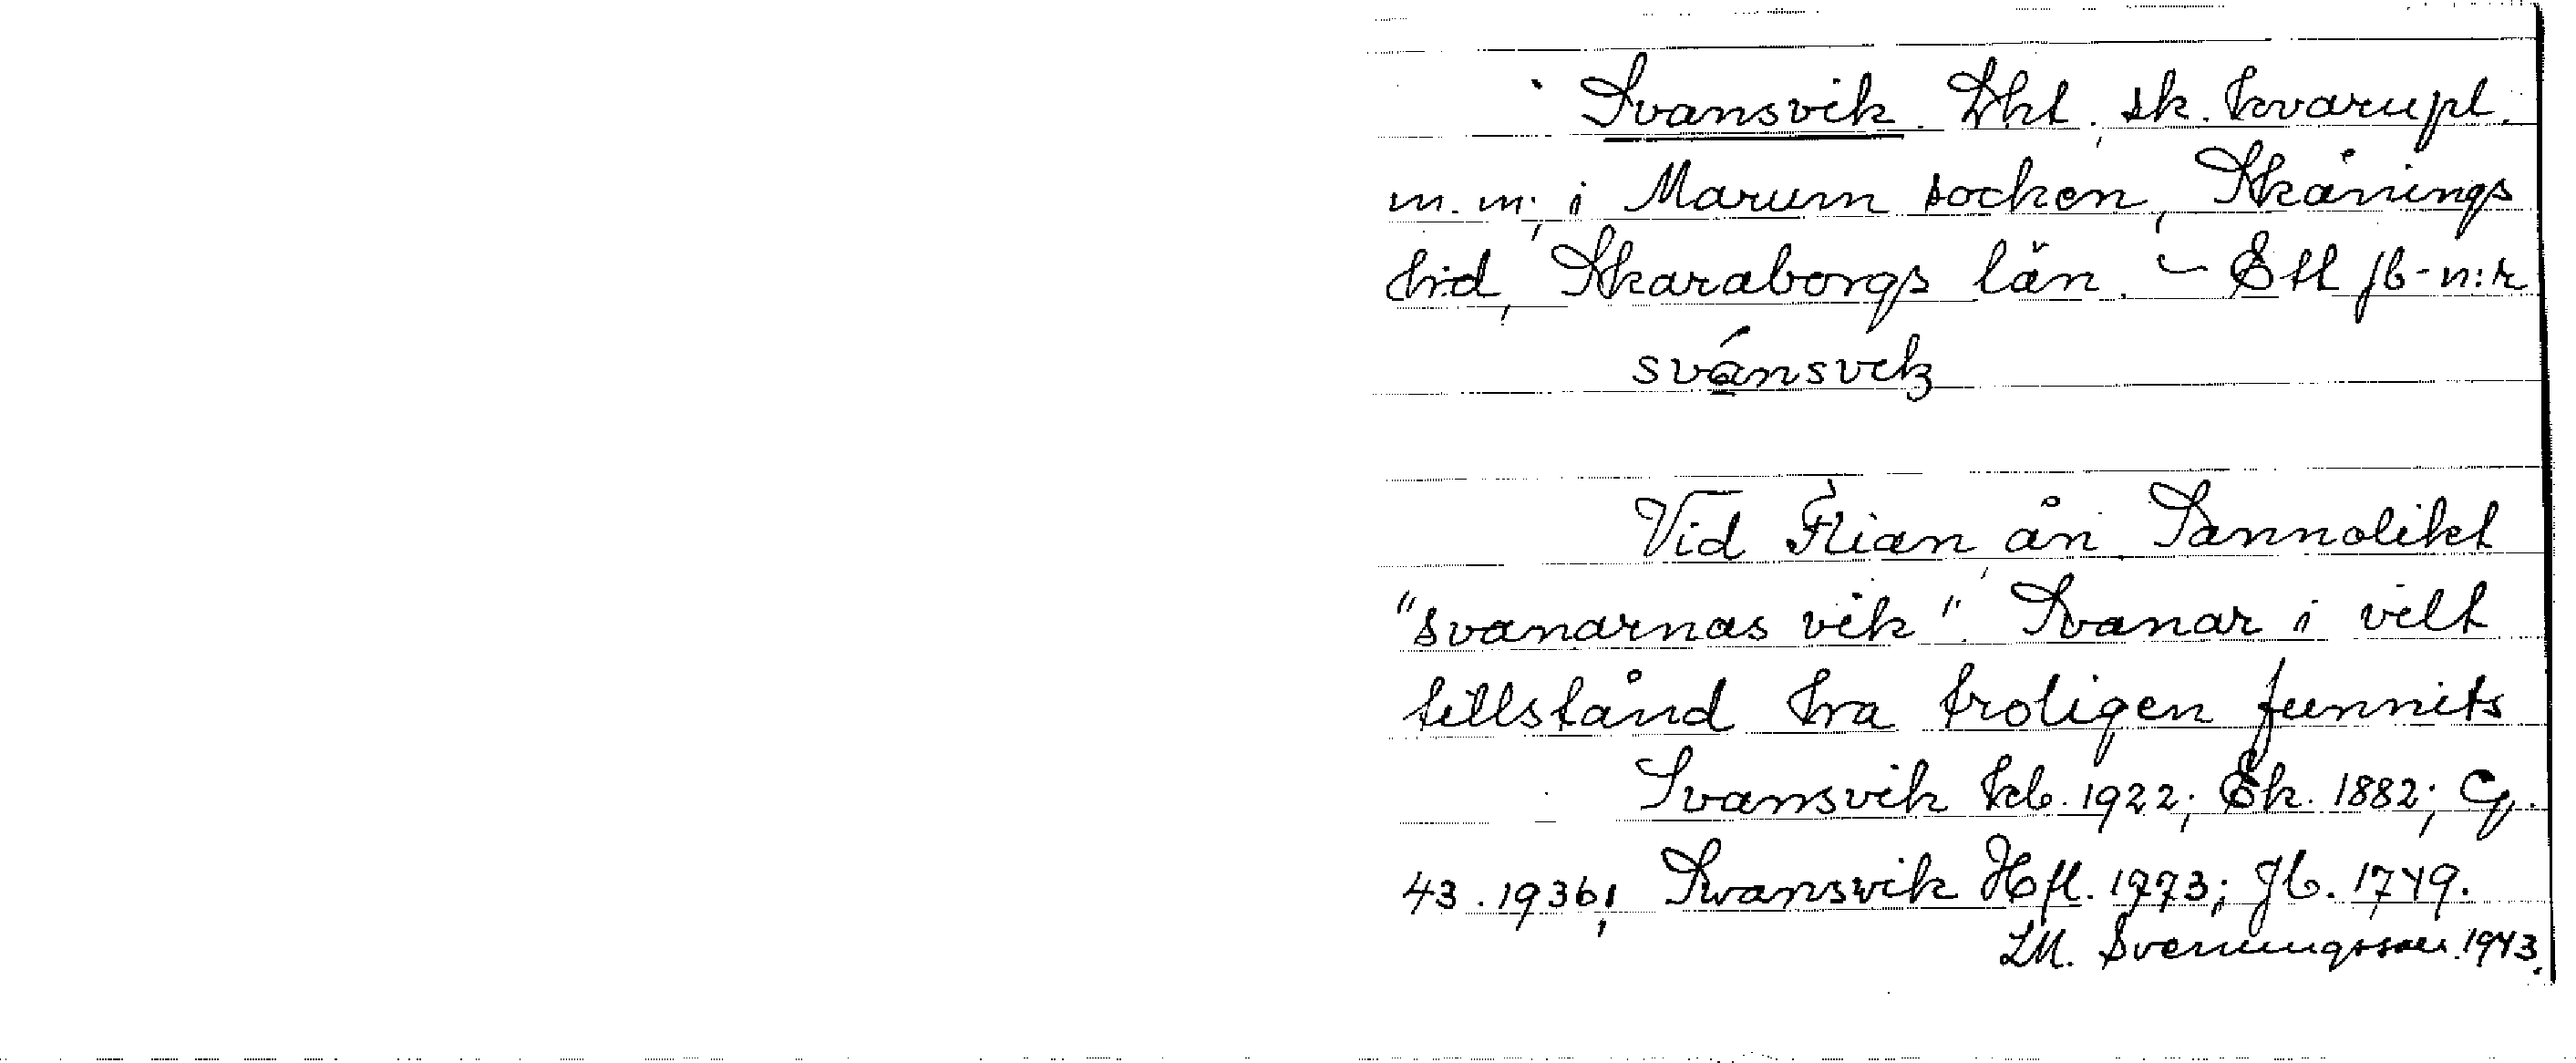 Svansvik. Lht., sk. kvarupl.
m. m., i Marum socken, Skånings
hd, Skaraborgs län. – Ett jb-n:r
svánsvek
Vid Flian, ån. Sannolikt
"svanarnas vik". Svanar i vilt
tillstånd ha troligen funnits
Svansvik kb. 1922; Ek. 1882; Cg.
43. 1936; Swansvik Hfl. 1773; Jb. 1749.
LM. Svenungsson. 1943.